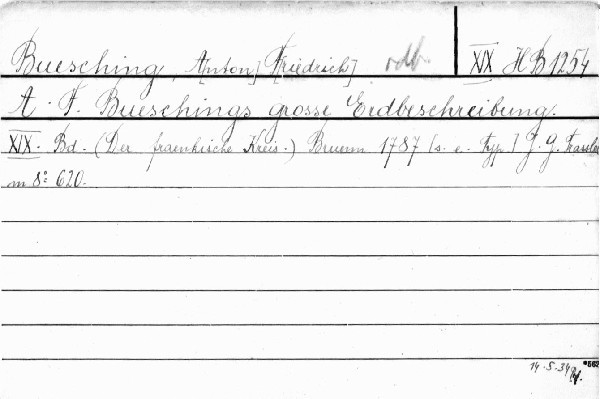 Buesching, A[nton] F[riedrich] odb. XIX HB1254
A. F. Bueschings grosse Erdbeschreibung.
XIX. Bd. (Der fraenkische Kreis.) Bruenn 1787 [s. e. Typ.] J. G. Trassler
m 8° 620.
14.5.34
*562